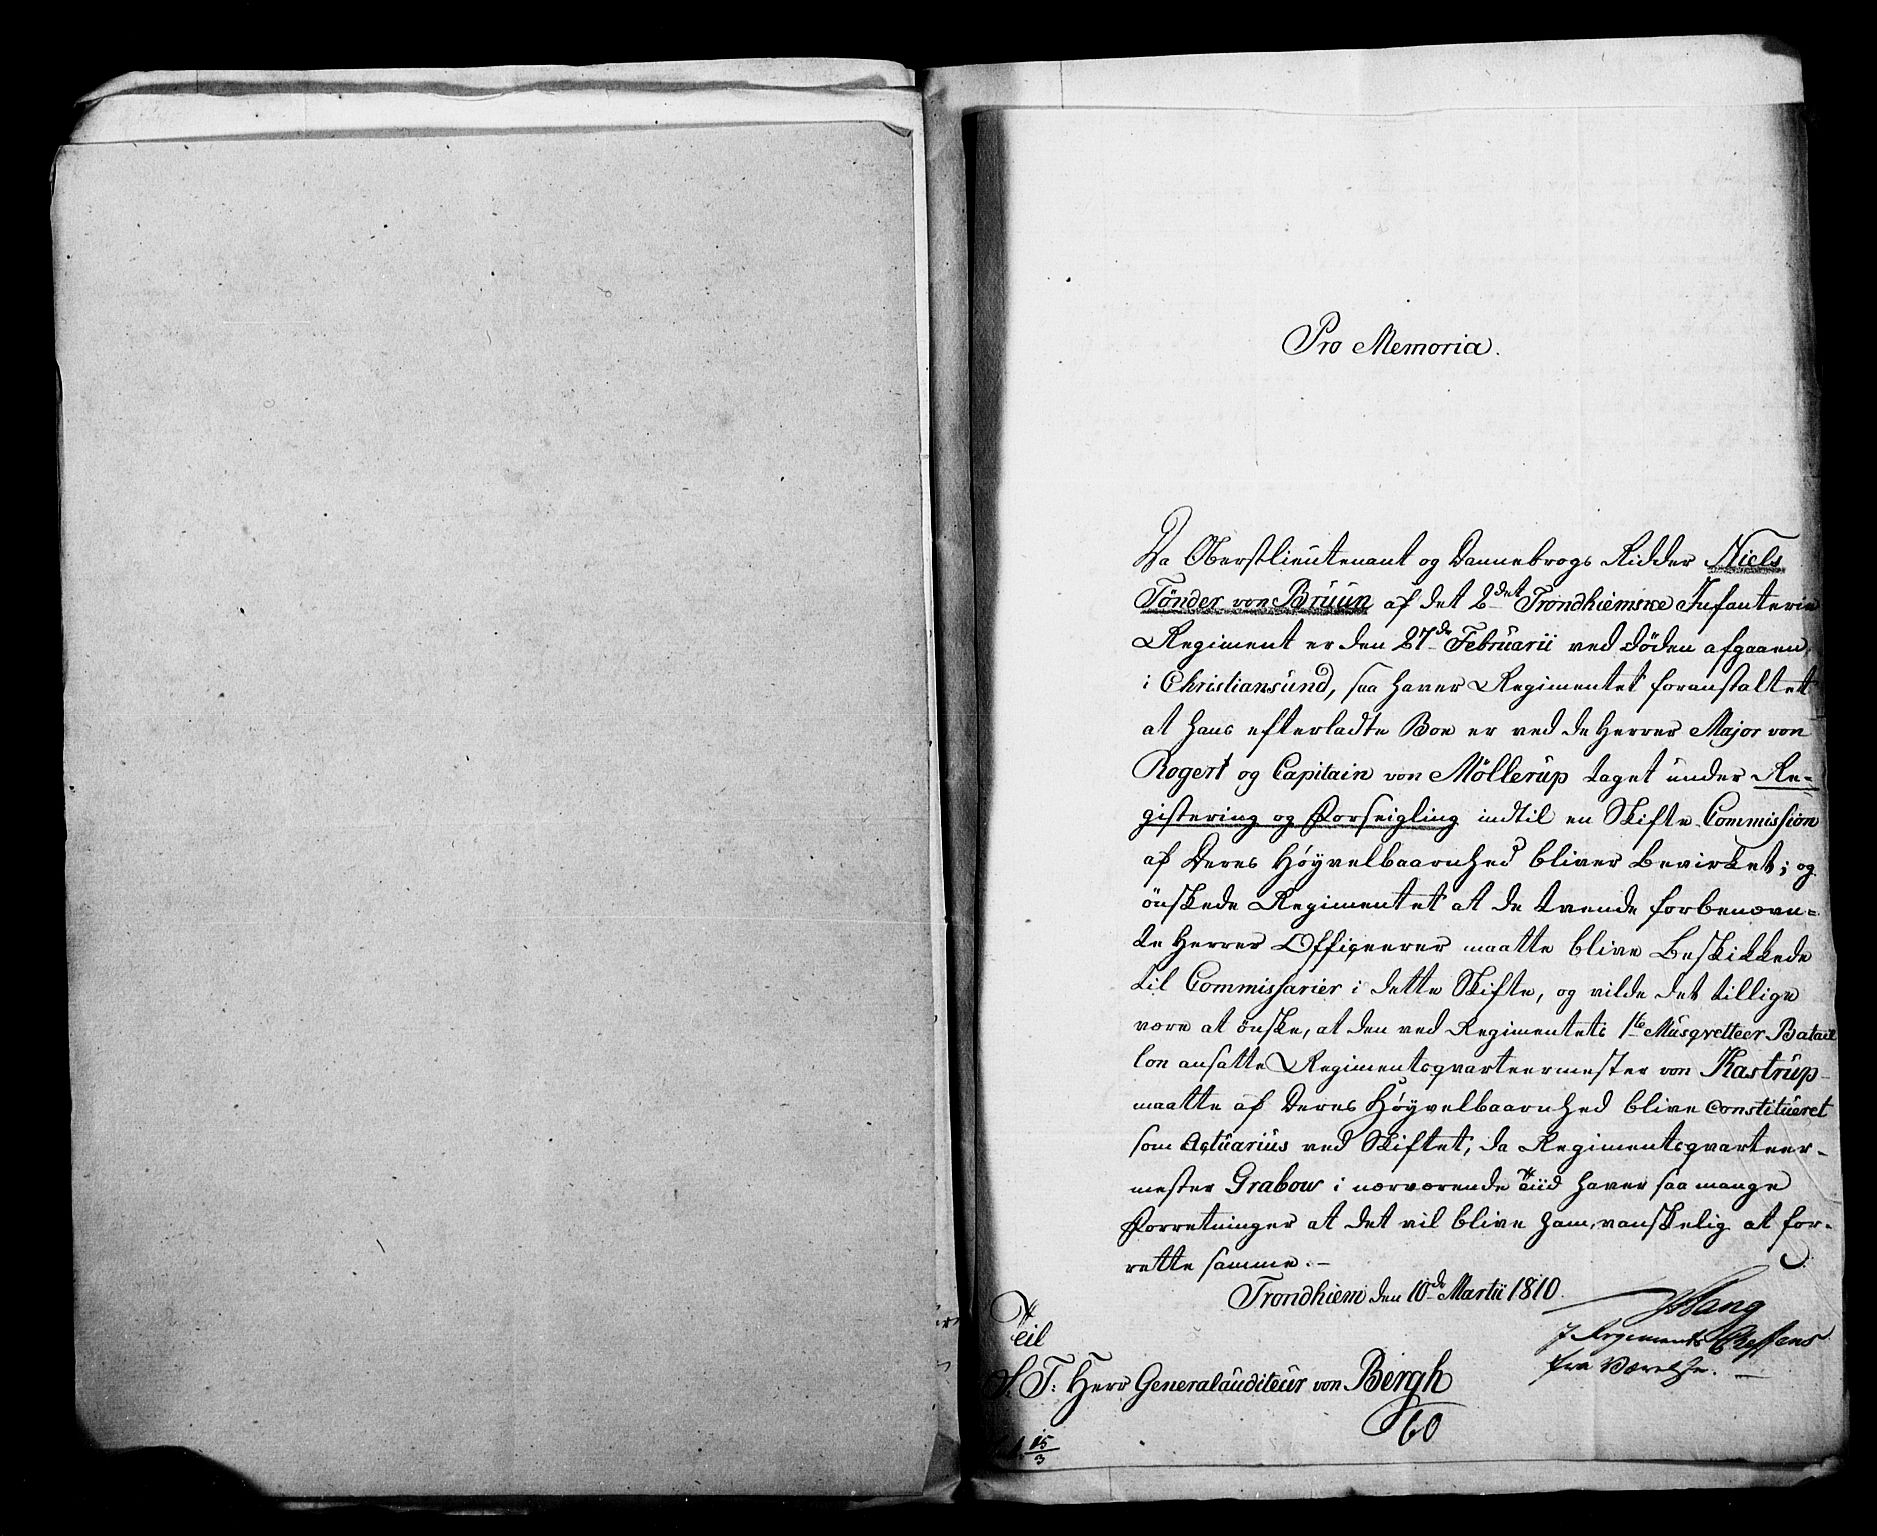 Pro Memoria.
Da Oberstlieutenant og Dannebrogs Ridder Niels
Tönder von Bruun af det 2det Trondhiemske Infanterie
Regiment er den 27de Februarii ved Döden afgaaen
i Christiansund, saa haver Regimentet foranstaltet
at hans efterladte Boe er ved de Herrer Major von
Rogert og Capitain von Möllerup taget under Re-
gistering og Forseigling indtil en Skifte Commission
af Deres Höyvelbaarnhed bliver bevirket; og
önskede Regimentet at de tvende forbenævn-
te Herrer Officeerer maatte blive Beskikkede
til Commissarier i dette Skifte, og vilde det tillige
være at önske, at den ved Regimentets 1te Musqvetteer Batail
lon ansatte Regimentsqvarteermester von Kastrup
maatte af Deres Höyvelbaarnhed blive constitueret
som Actuarius ved Skiftet, da Regimentsqvarteer-
mester Grabow i nærværende Tiid haver saa mange
Forretninger at det vil blive ham vanskelig at for-
rette samme.-
Trondhiem den 10de Martii 1810.
Bang
I Regiments Cheffens
fraværelse.
Til
S. T: Herr Generalauditeur von Bergh
60
15/3